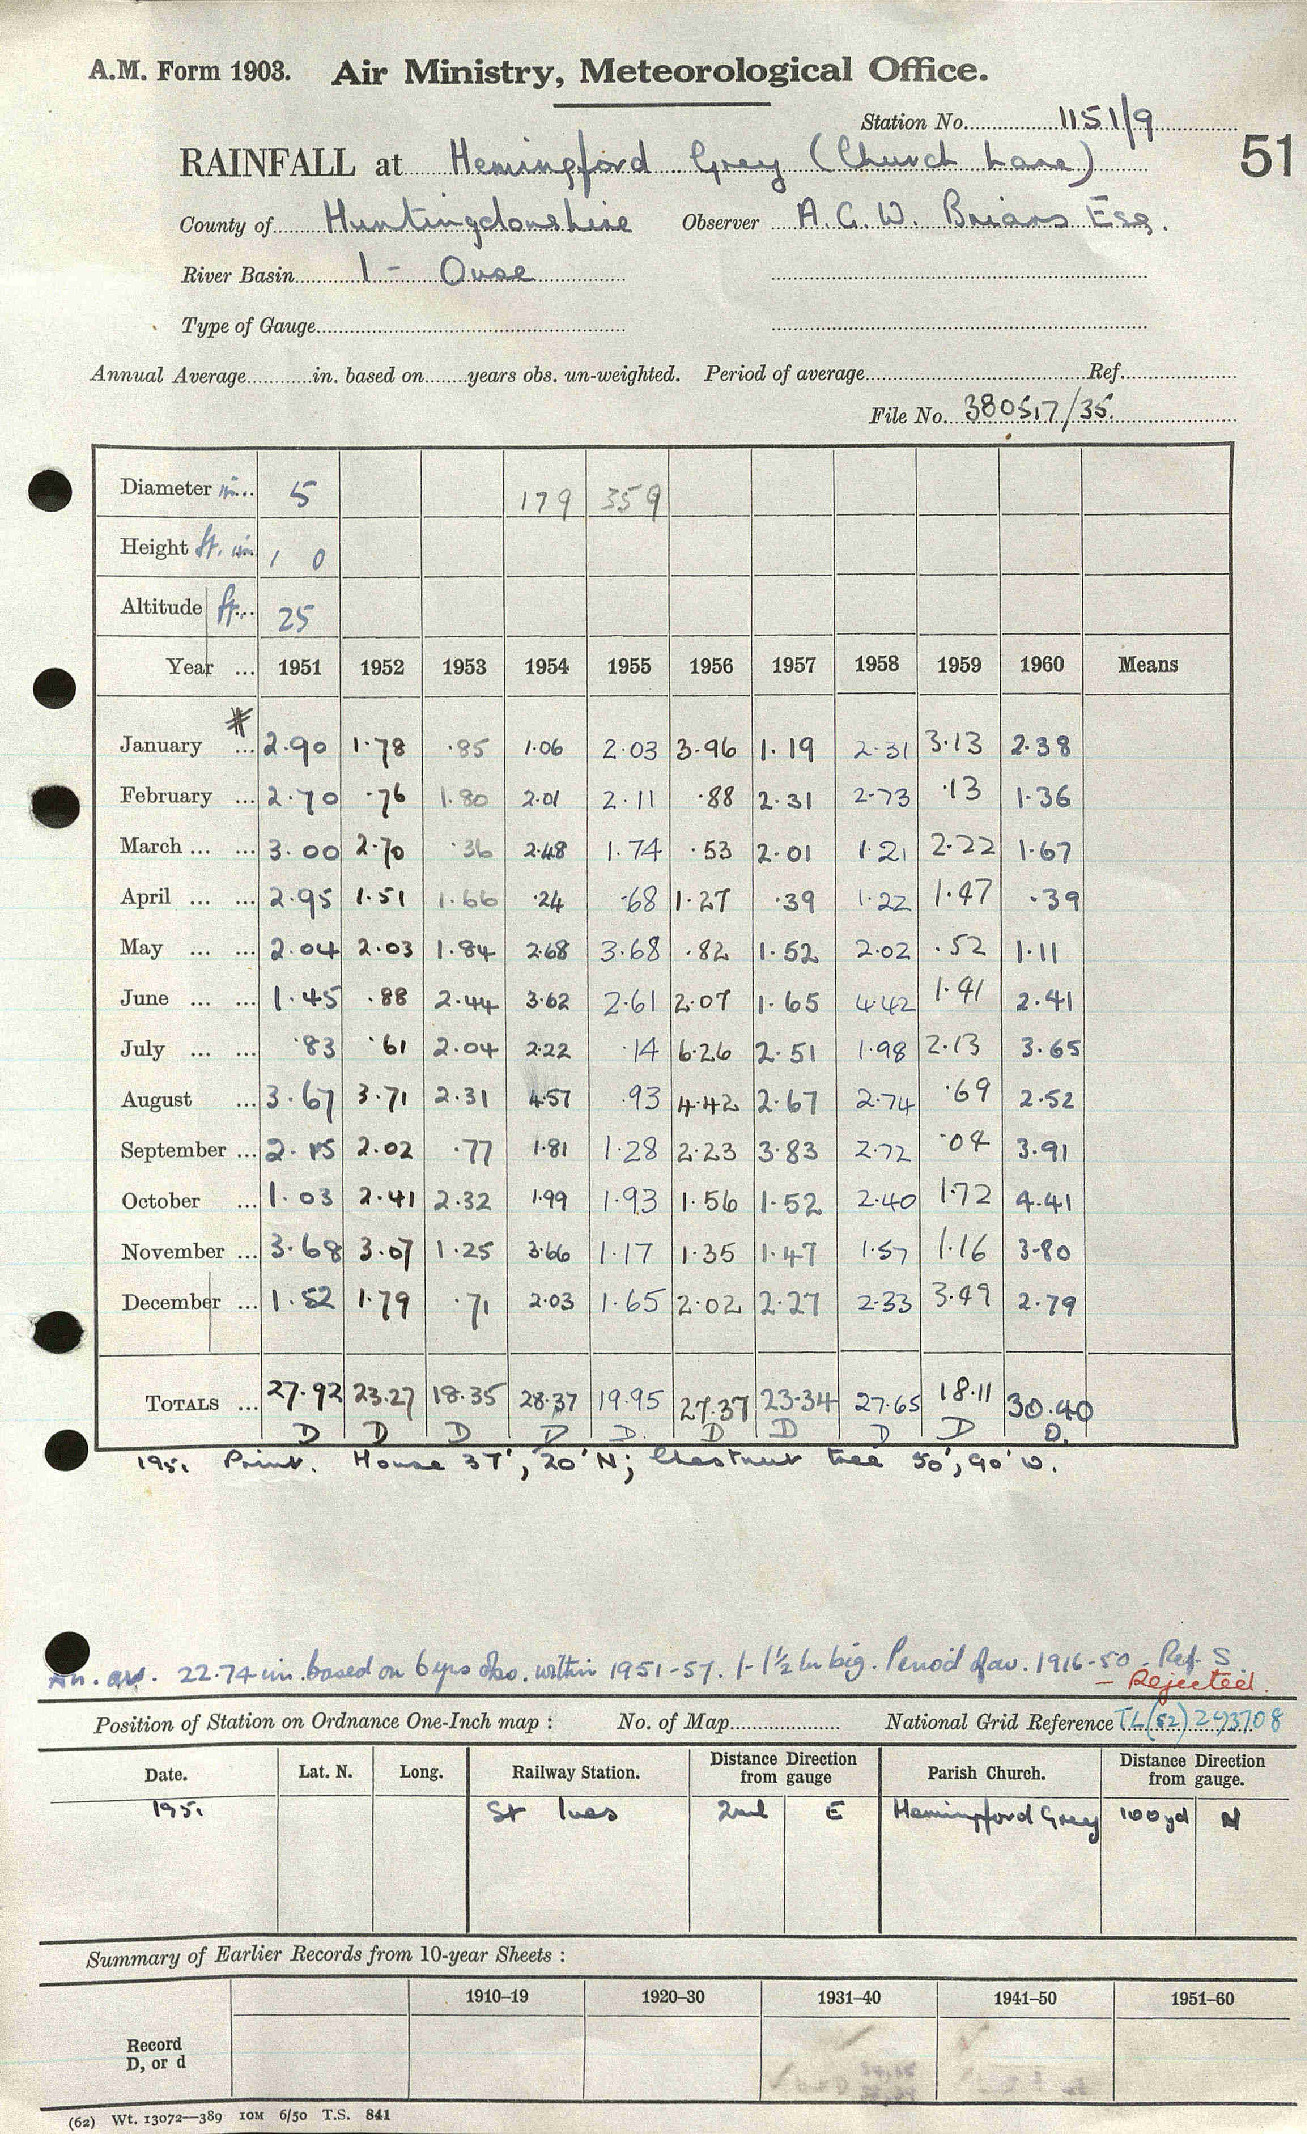 A.M. Form 1903. Air Ministry, Meteorological Office.
Station No. 1151/9
RAINFALL at Hemingford Grey (Church Lane) 51
County of Huntingdonshire Observer A. G. W. Brians Esq.
River Basin 1 - Ouse
Type of Gauge
Annual Average in. based on years obs. un-weighted. Period of average Ref.
File No. 380517/35.
Diameter in. 5 179 359
Height ft. in 1 0
Altitude ft. 25
Year ... 1951 1952 1953 1954 1955 1956 1957 1958 1959 1960 Means
#
January ... 2.90 1.78 .85 1.06 2.03 3.96 1.19 2.31 3.13 2.38
February ... 2.70 .76 1.80 2.01 2.11 .88 2.31 2.73 .13 1.36
March ... ... 3.00 2.70 .36 2.48 1.74 .53 2.01 1.21 2.22 1.67
April ... ... 2.95 1.51 1.66 .24 .68 1.27 .39 1.22 1.47 .39
May ... ... 2.04 2.03 1.84 2.68 3.68 .82 1.52 2.02 .52 1.11
June ... ... 1.45 .88 2.44 3.62 2.61 2.07 1.65 4.42 1.41 2.41
July ... ... .83 .61 2.04 2.22 .14 6.26 2.51 1.98 2.13 3.65
August ... 3.67 3.71 2.31 4.57 .93 4.42 2.67 2.74 .69 2.52
September ... 2.15 2.02 .77 1.81 1.28 2.23 3.83 2.72 .04 3.91
October ... 1.03 2.41 2.32 1.99 1.93 1.56 1.52 2.40 1.72 4.41
November ... 3.68 3.07 1.25 3.66 1.17 1.35 1.47 1.57 1.16 3.80
December ... 1.52 1.79 .71 2.03 1.65 2.02 2.27 2.33 3.49 2.79
TOTALS ... 27.92 23.27 18.35 28.37 19.95 27.37 23.34 27.65 18.11 30.40
D D D D D. D D D D D.
1951 Print. House 37', 20' N; Chestnut tree 50', 90' W.
An. av. 22.74 in. based on 6 yrs obs. within 1951-57. 1-1½ in big. Period of av. 1916-50. Ref. S.
- Rejected.
Position of Station on Ordnance One-Inch map : No. of Map National Grid Reference TL(52) 293708
Date. Lat. N. Long. Railway Station. Distance Direction from gauge Parish Church. Distance Direction from gauge.
1951 St Ives E Hemingford Grey 100 yd N
Summary of Earlier Records from 10-year Sheets :
1910–19 1920–30 1931–40 1941–50 1951–60
Record
D, or d
(62) Wt. 13072—389 10M 6/50 T.S. 841